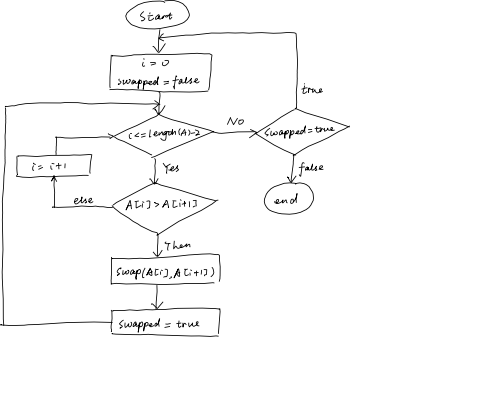 Start
i = 0
swapped = false
i <= length(A)-2
No
swapped = true
true
false
end
Yes
i = i+1
A[i] > A[i+1]
else
Then
Swap(A[i], A[i+1])
swapped = true